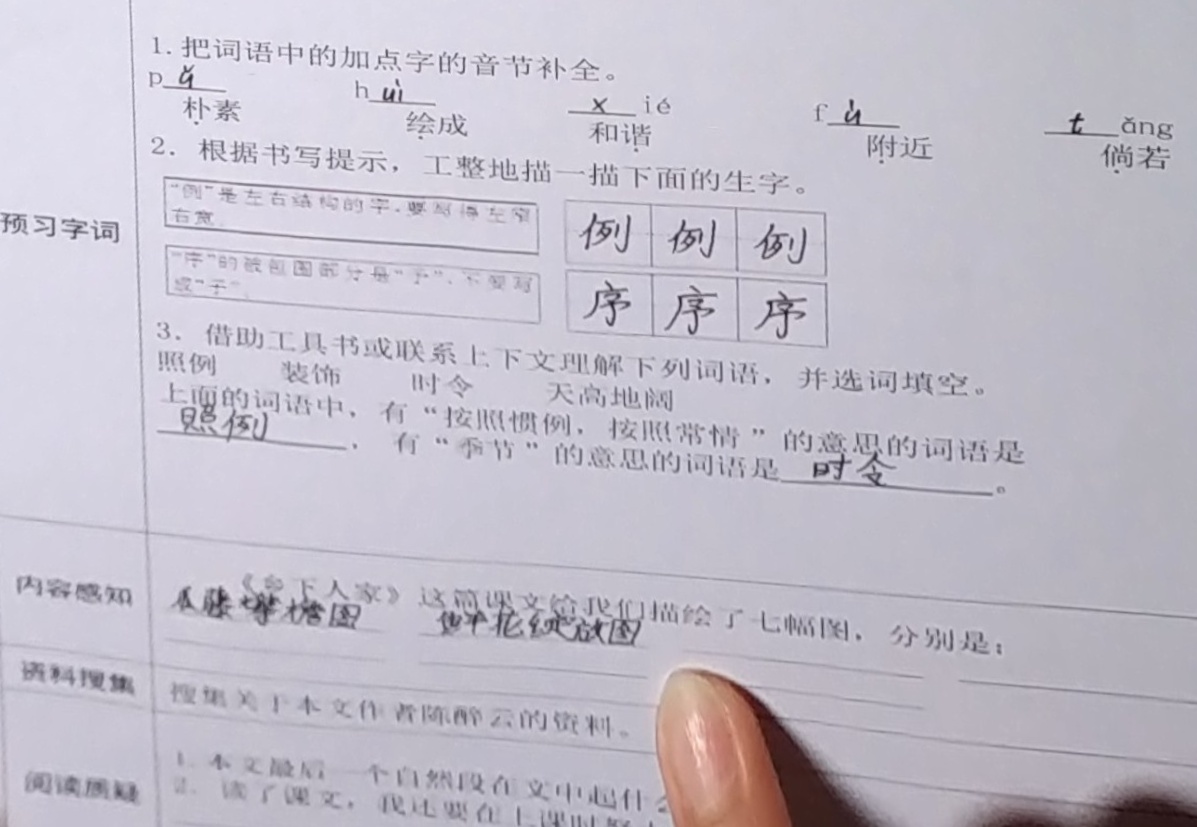 1. 把词语中的加点字的音节补全。
pǔ huì xié fù tǎng
朴素 绘成 和谐 附近 倘若
2. 根据书写提示，工整地描一描下面的生字。
预习字词
“例”是左右结构的字，要写得左窄
右宽。
例 例 例
“序”的被包围部分是“予”，不要写
成“子”。
序 序 序
3. 借助工具书或联系上下文理解下列词语，并选词填空。
照例 装饰 时令 天高地阔
上面的词语中，有“按照惯例，按照常情”的意思的词语是
照例，有“季节”的意思的词语是时令。
内容感知
《乡下人家》这篇课文给我们描绘了七幅图，分别是：
瓜藤攀檐图 鲜花绽放图
资料搜集
搜集关于本文作者陈醉云的资料。
阅读质疑
1. 本文最后一个自然段在文中起什
2. 读了课文，我还要在上课时